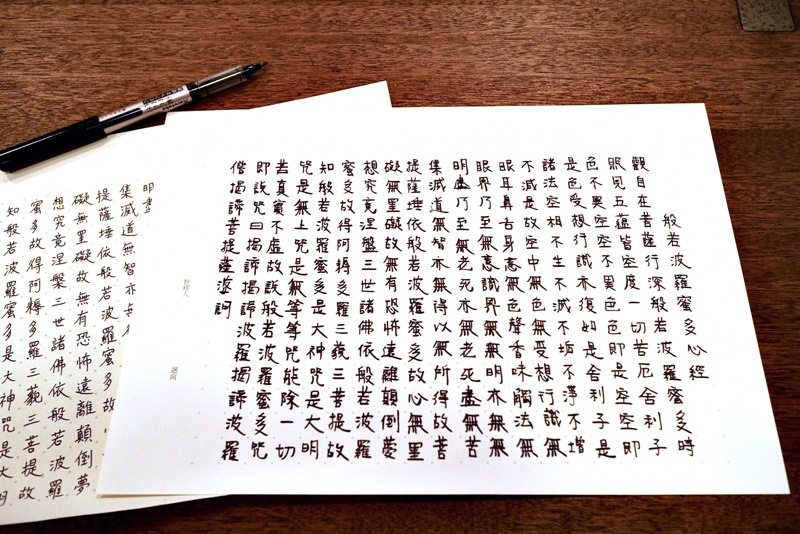 般若波羅蜜多心經
觀自在菩薩行深般若波羅蜜多時
照見五蘊皆空度一切苦厄舍利子
色不異空空不異色色即是空空即
是色受想行識亦復如是舍利子是
諸法空相不生不滅不垢不淨不增
不減是故空中無色無受想行識無
眼耳鼻舌身意無色聲香味觸法無
眼界乃至無意識界無無明亦無無
明盡乃至無老死亦無老死盡無苦
集滅道無智亦無得以無所得故菩
提薩埵依般若波羅蜜多故心無罣
礙無罣礙故無有恐怖遠離顛倒夢
想究竟涅盤三世諸佛依般若波羅
蜜多故得阿耨多羅三藐三菩提故
知般若波羅蜜多是大神咒是大明
咒是無上咒是無等等咒能除一切
苦真實不虛故說般若波羅蜜多咒
即說咒曰揭諦揭諦波羅揭諦波羅
僧揭諦菩提薩婆訶
抄經人
迴向
明盡
集滅道無智亦
提薩埵依般若波羅蜜多故
礙無罣礙故無有恐怖遠離顛倒夢
想究竟涅槃三世諸佛依般若波羅
蜜多故得阿耨多羅三藐三菩提故
知般若波羅蜜多是大神咒是大明